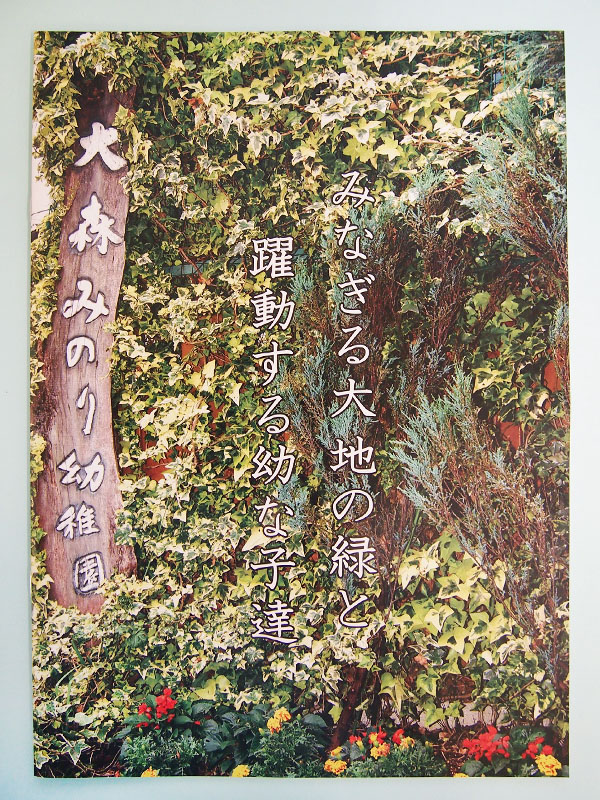 みなぎる大地の緑と
躍動する幼な子達
大森みのり幼稚園